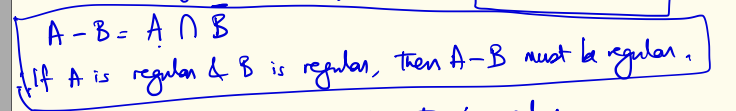 A - B = A ∩ B̅
If A is regular & B is regular, then A-B must be regular.